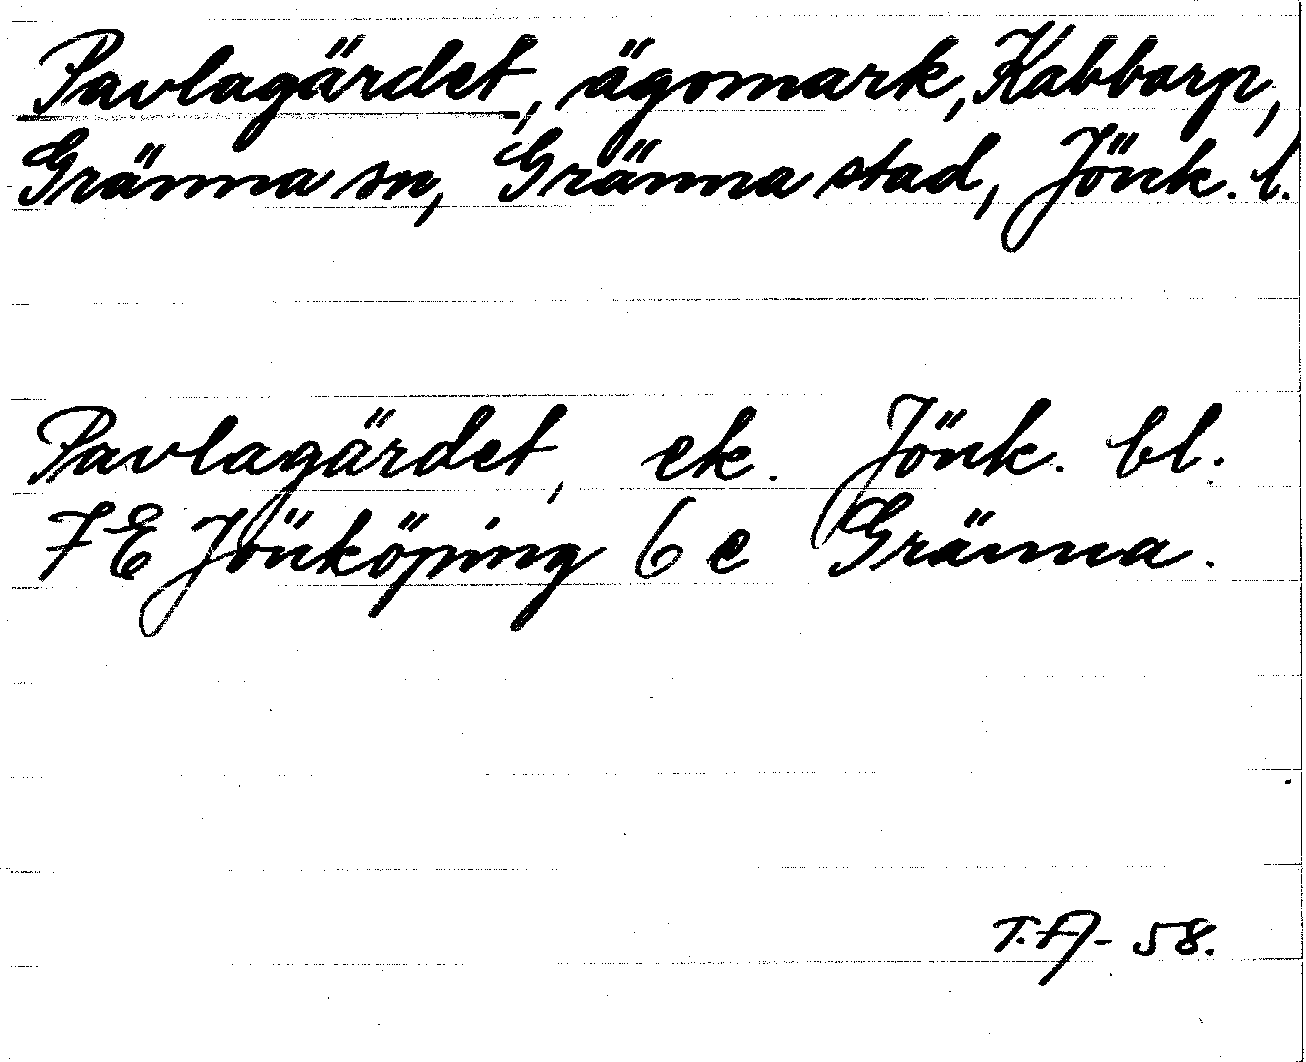 Pavlagärdet, ägomark, Kabbarp,
Gränna sn, Gränna stad, Jönk. l.
Pavlagärdet, ek. Jönk. bl.
7E Jönköping 6 e Gränna.
58.